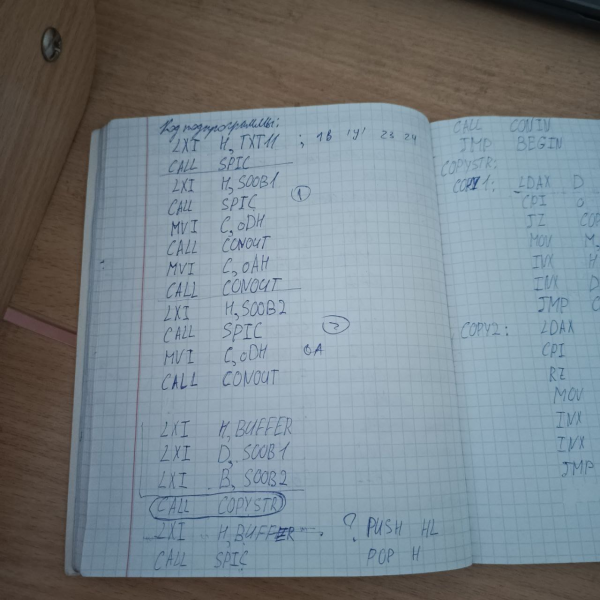 Код подпрограммы:
LXI H, TXT11 ; 1B 'Y' 23 24
CALL SPIC
LXI H, SOOB1
CALL SPIC 1
MVI C, 0DH
CALL CONOUT
MVI C, 0AH
CALL CONOUT
LXI H, SOOB2
CALL SPIC 2
MVI C, 0DH 0A
CALL CONOUT
LXI H, BUFFER
LXI D, SOOB1
LXI B, SOOB2
CALL COPYSTR
LXI H, BUFFER . ? PUSH HL
CALL SPIC POP H
CALL CONIN
JMP BEGIN
COPYSTR:
COPY1: LDAX D
CPI 0
JZ COP
MOV M,
INX H
INX D
JMP C
COPY2: LDAX
CPI
RZ
MOV
INX
INX
JMP